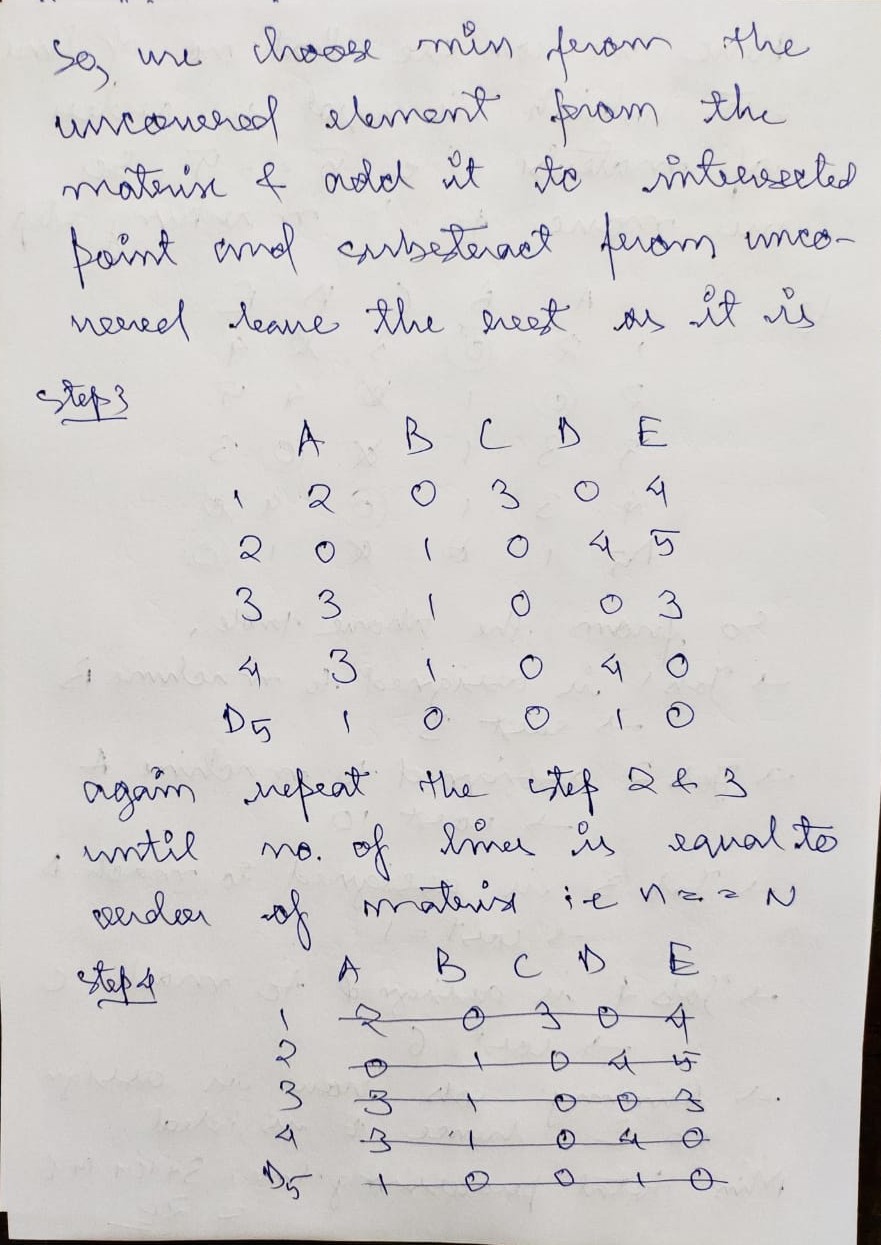 So, we choose min from the
uncovered element from the
matrix & add it to intersected
point and substeract from unco-
vered leave the rest as it is
Step 3
A B C D E
1 2 0 3 0 4
2 0 1 0 4 5
3 3 1 0 0 3
4 3 1 0 4 0
D5 1 0 0 1 0
again repeat the step 2 & 3
until no. of lines is equal to
order of matrix i e n = = N
Step 4
A B C D E
1 2 0 3 0 4
2 0 1 0 4 5
3 3 1 0 0 3
4 3 1 0 4 0
D5 1 0 0 1 0